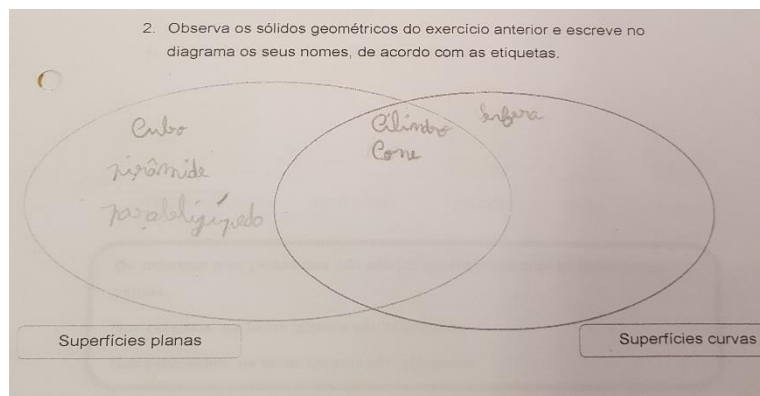 2. Observa os sólidos geométricos do exercício anterior e escreve no
diagrama os seus nomes, de acordo com as etiquetas.
Cubo
Cilindro
Cone
pirâmide
Superfícies planas
Superfícies curvas